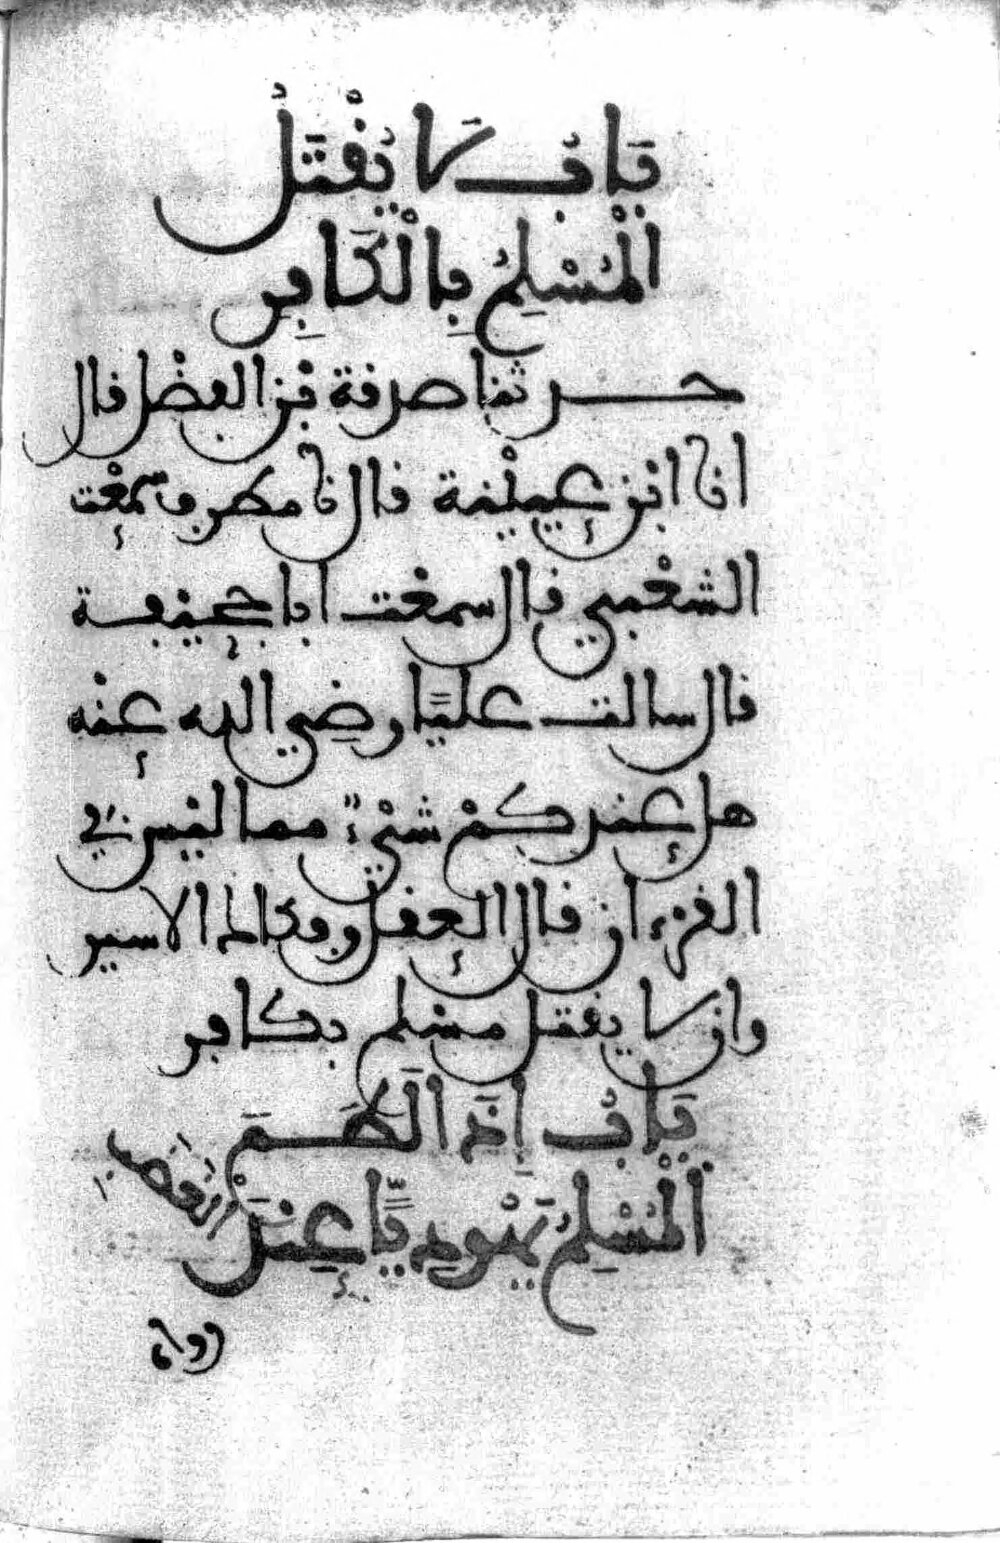 بَابٌ لَا يُقْتَلُ
الْمُسْلِمُ بِالْكَافِرِ
حدثنا صدقة بْن الفضْل قال
انا ابْن عيينة قال نا مطرف سمعْت
الشعْبي قال سمعْت ابا جحيفة
قال سالت عليًّا رضي الله عنْه
هل عندكمْ شيْءٌ مما ليْس في
القرءان قال العقل وفكاك الاسير
وان لا يقتل مسْلم بكافر
بَابٌ إِذَا لَطَمَ
الْمُسْلِمُ يَهُودِيًّا عِنْدَ الغضب
رواه